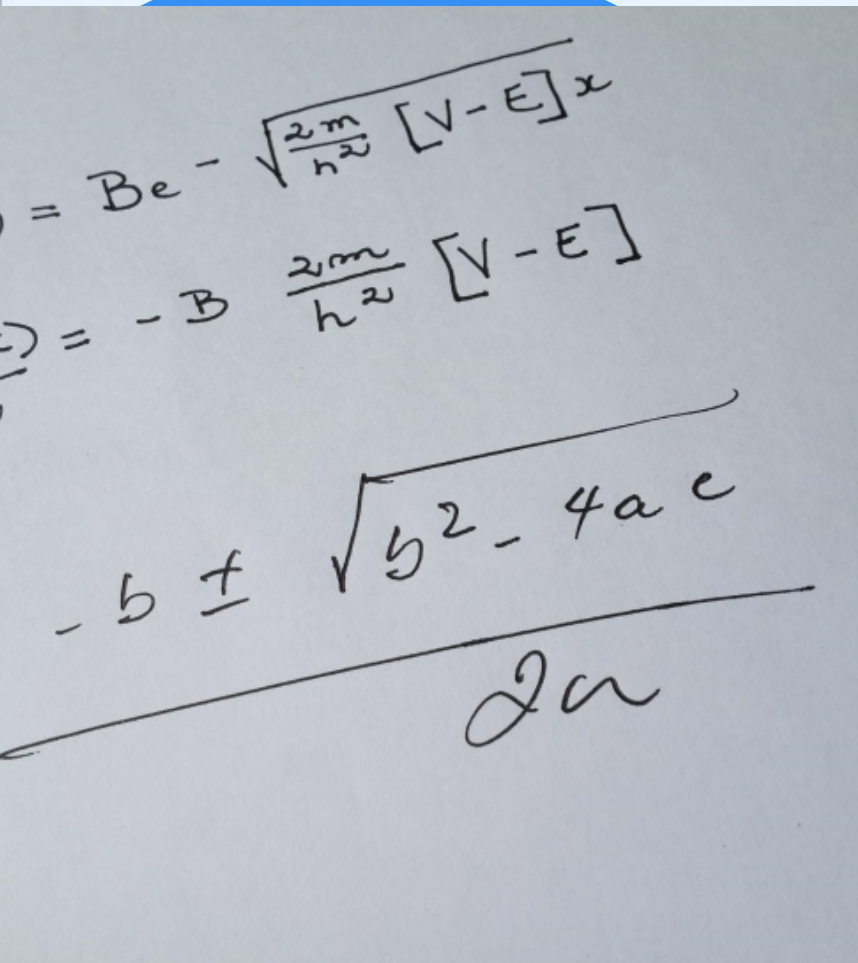 ) = Be - √(2m/h² [V - E]) x
) = - B 2m/h² [V - E]
- b ± √(b² - 4ac)
2a